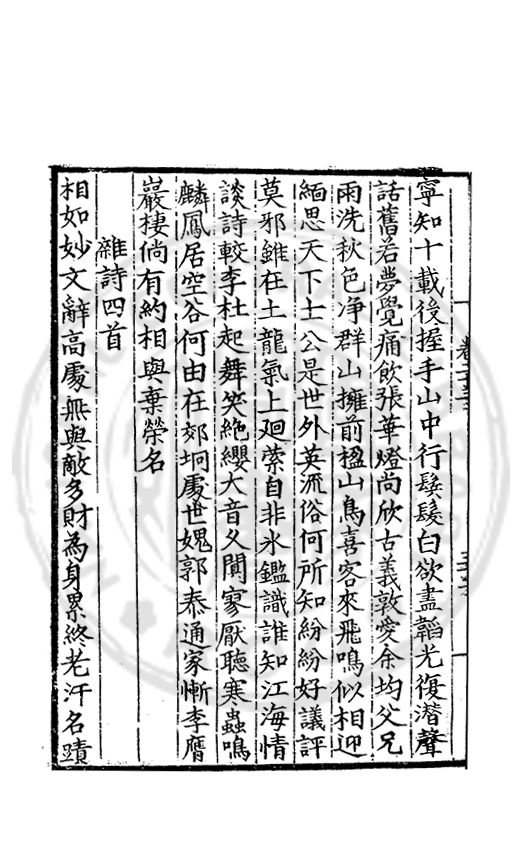 寧知十載後握手山中行鬓髮白欲盡韜光復潛聲
話舊若夢覺痛飲張華燈尚欣古義敦愛余均父兄
雨洗秋色净群山擁前楹山鳥喜客來飛鳴似相迎
緬思天下士公是世外英流俗何所知紛紛好議評
莫邪雖在土龍氣上迴縈自非氷鑑識誰知江海情
談詩較李杜起舞笑絶纓大音久闃寥厭聽寒蟲鳴
麟鳳居空谷何由在郊坰處世媿郭泰通家慚李膺
巖棲倘有約相與棄榮名
雜詩四首
相如妙文辭高處無與敵多財為身累終老汗名蹟